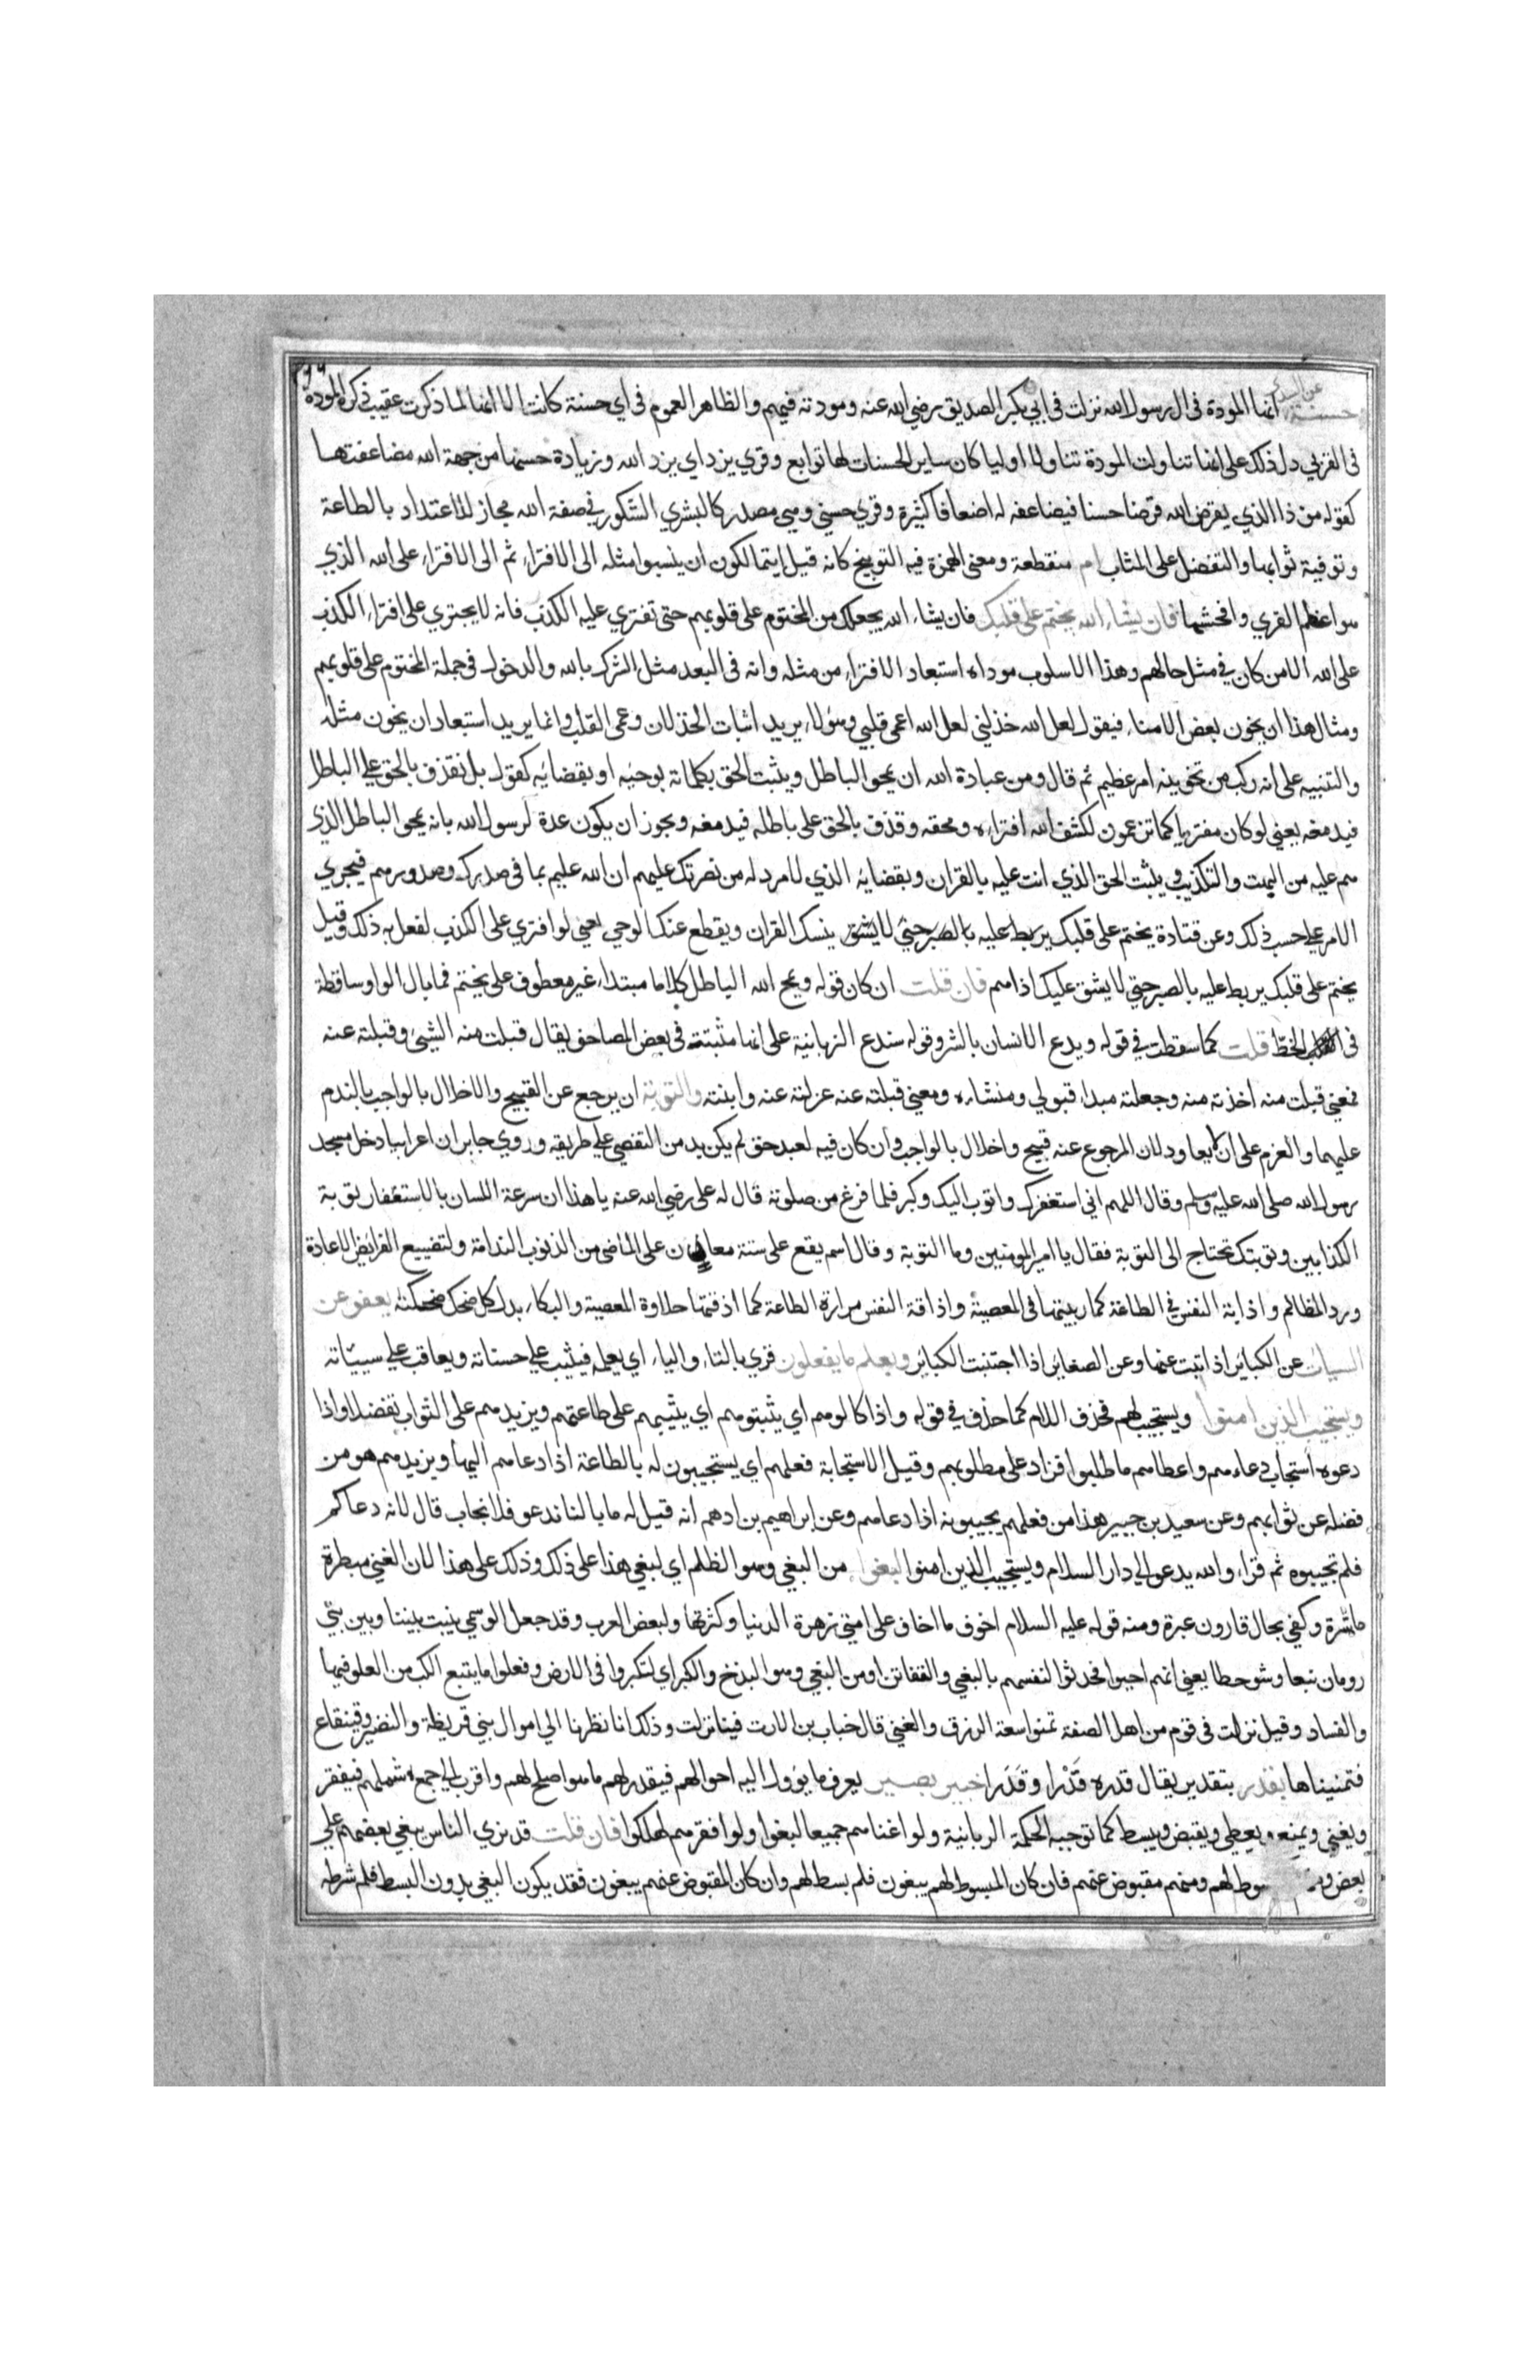 عن السدي
حسنة انها المودة فى ال رسول الله نزلت فى ابي بكر الصديق رضي الله عنه ومودته فيهم والظاهر العموم فى اي حسنة كانت الا انها لما ذكرت عقيب ذكر المودة
فى القربي دل ذلك على انها تناولت المودة تناولا اوليا كان ساير الحسنات لها توابع وقري يزد اي يزد الله وزيادة حسنها من جهة الله مضاعفتها
كقوله من ذا الذي يقرض الله قرضا حسنا فيضاعفه له اضعافا كثيرة وقري حسني وهي مصدر كالبشري الشكور في صفة الله مجاز للاعتداد بالطاعة
وتوفية ثوابها والتفضل على المثاب ام منقطعة ومعنى الهمزة فيه التوبيخ كانه قيل ايتمالكون ان ينسبوا مثله الى الافتراء ثم الى الافتراء على الله الذي
هو اعظم الفري وافحشها فان يشاء الله يختم على قلبك فان يشاء الله يجعلك من المختوم على قلوبهم حتى تفتري عليه الكذب فانه لا يجتري على افتراء الكذب
على الله الا من كان في مثل حالهم وهذا الاسلوب موداه استبعاد الافتراء من مثله وانه فى البعد مثل الشرك بالله والدخول فى جملة المختوم على قلوبهم
ومثال هذا ان يخون بعض الامناء فيقول لعل الله خذلني لعل الله اعمى قلبي وهو لا يريد اثبات الخذلان وعمى القلب وانما يريد استبعاد ان يخون مثله
والتنبيه على انه ركب من تخوينه امر عظيم ثم قال ومن عبادة الله ان يمحو الباطل ويثبت الحق بكلماته بوحيه او بقضائه كقوله بل نقذف بالحق على الباطل
فيدمغه يعني لو كان مفتريا كما تزعمون لكشف الله افتراءه ومحقه وقذف بالحق على باطله فيدمغه ويجوز ان يكون عدة لرسول الله بانه يمحو الباطل الذي
هم عليه من البهت والتكذيب ويثبت الحق الذي انت عليه بالقران وبقضايه الذي لا مرد له من نصرتك عليهم ان الله عليم بما فى صدرك وصدورهم فيجري
الامر على حسب ذلك وعن قتادة يختم على قلبك يربط عليه بالصبر حتي لا يشق ينسك القران ويقطع عنك الوحي يعني لو افتري على الكذب لفعل به ذلك وقيل
يختم على قلبك يربط عليه بالصبر حتي لا يشق عليك اذاهم فان قلت ان كان قوله ويمح الله الباطل كلاما مبتداء غير معطوف على يختم فما بال الواو ساقطة
فى الخط قلت كما سقطت في قوله ويدع الانسان بالشر وقوله سندع الزبانية على انها مثبتة فى بعض المصاحف يقال قبلت منه الشيئ وقبلته عنه
فمعني قبلت منه اخذته منه وجعلته مبدا قبولي ومنشاءه ومعني قبلته عنه عزلته عنه وابنته والتوبة ان يرجع عن القبيح والاخلال بالواجب بالندم
عليهما والعزم على ان لا يعاود لان المرجوع عنه قبيح واخلال بالواجب وان كان فيه لعبد حق لم يكن بد من التفصي على طريقه وروي جابر ان اعرابيا دخل مسجد
رسول الله صلى الله عليه وسلم وقال اللهم اني استغفرك واتوب اليك وكبر فلما فرغ من صلوته قال له على رضي الله عنه يا هذا ان سرعة اللسان بالاستغفار توبة
الكذابين وتوبتك تحتاج الى التوبة فقال يا امير المومنين وما التوبة وقال اسم يقع على ستة معان على الماضي من الذنوب الندامة ولتضييع الفرايض الاعادة
ورد المظالم واذابة النفس في الطاعة كما ربيتها فى المعصية واذاقة النفس مرارة الطاعة كما اذقتها حلاوة المعصية والبكاء بدل كل ضحك ضحكته يعفو عن
السيات عن الكبائر اذا تبت عنها وعن الصغاير اذا اجتنبت الكبائر ويعلم ما يفعلون قري بالتاء والياء اي يعلمه فيثيب على حسناته ويعاقب على سيئاته
ويستجيب الذين امنوا ويستجيب لهم فحذف اللام كما حذف في قوله واذا كالوهم اي يثبتوهم اي يثيبهم على طاعتهم ويزيدهم على الثواب تفضلا او اذا
دعوه استجاب دعاءهم واعطاهم ما طلبوا فزاد على مطلوبهم وقيل الاستجابة فعلهم اي يستجيبون له بالطاعة اذا دعاهم اليها ويزيدهم هو من
فضله عن ثوابهم وعن سعيد بن جبير هذا من فعلهم يجيبونه اذا دعاهم وعن ابراهيم بن ادهم انه قيل له ما بالنا ندعو فلا نجاب قال لانه دعاكم
فلم تجيبوه ثم قراء والله يدعو الي دار السلام ويستجيب الذين امنوا لبغوا من البغي وهو الظلم اي لبغي هذا على ذلك وذلك على هذا لان الغني مبطرة
ماشرة وكفي بحال قارون عبرة ومنه قوله عليه السلام اخوف ما اخاف على امتي زهرة الدنيا وكثرتها ولبعض العرب وقد جعل الوسمي ينبت بيننا وبين بني
رومان نبعا وشوحطا يعني انهم احيوا فحدثوا انفسهم بالبغي والتفاتن او من البغي وهو البذخ والكبر اي لتكبروا فى الارض وفعلوا ما يتبع الكبر من العلو فيها
والفساد وقيل نزلت فى قوم من اهل الصفة تمنوا سعة الرزق والغني قال خباب بن الارت فينا نزلت وذلك انا نظرنا الي اموال بني قريظة والنضير وقينقاع
فتمنيناها بقدر بتقدير يقال قدره قَدْرا وقَدَرا خبير بصير يعرف ما يؤول اليه احوالهم فيقدر لهم ما هو اصلح لهم واقرب الي جمع شملهم فيفقر
ويغني ويمنع ويعطي ويقبض ويبسط كما توجبه الحكمة الربانية ولو اغناهم جميعا لبغوا ولو افقرهم لهلكوا فان قلت قد نري الناس يبغي بعضهم على
بعض سوط لهم ومنهم مقبوض عنهم فان كان المبسوط لهم يبغون فلم بسط لهم وان كان المقبوض عنهم يبغون فقد يكون البغي بدون البسط فلم شرطه